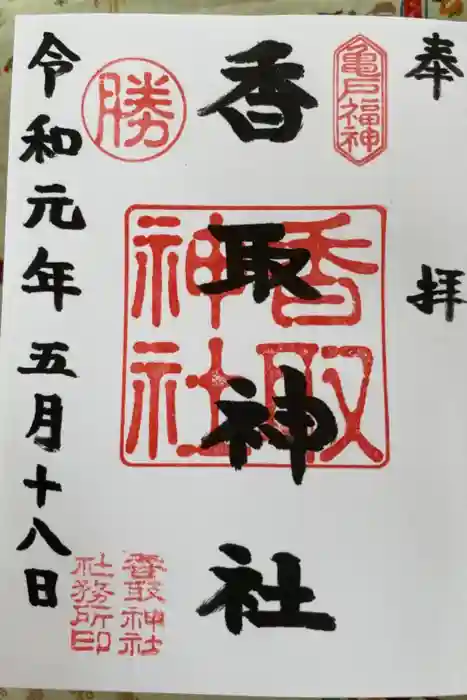 奉拝
亀戸福神
香取神社
香取神社
勝
令和元年五月十八日
香取神社
社務所印